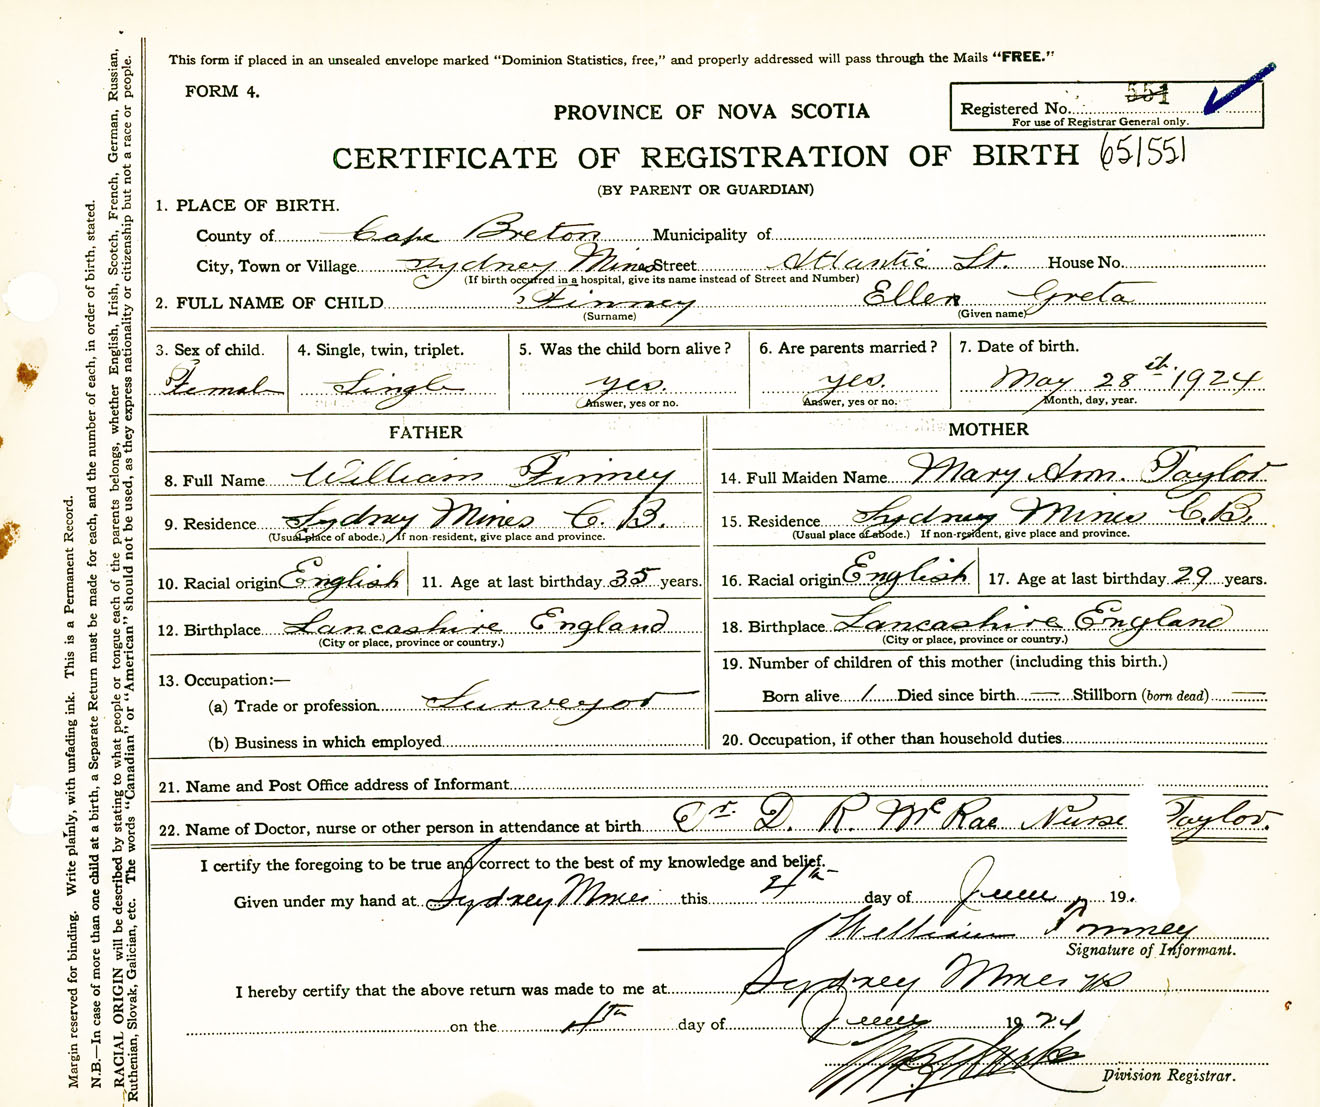 This form if placed in an unsealed envelope marked "Dominion Statistics, free," and properly addressed will pass through the Mails "FREE."
FORM 4.
551
PROVINCE OF NOVA SCOTIA
Registered No.
For use of Registrar General only.
CERTIFICATE OF REGISTRATION OF BIRTH 651551
(BY PARENT OR GUARDIAN)
1. PLACE OF BIRTH.
County of Cape Breton Municipality of
City, Town or Village Sydney Mines Street Atlantic St. House No.
(If birth occurred in a hospital, give its name instead of Street and Number)
2. FULL NAME OF CHILD Finney Ellen Greta
(Surname) (Given name)
3. Sex of child. 4. Single, twin, triplet. 5. Was the child born alive? 6. Are parents married? 7. Date of birth.
Female Single yes. yes. May 28th 1924
Answer, yes or no. Answer, yes or no. Month, day, year.
FATHER MOTHER
8. Full Name William Finney 14. Full Maiden Name Mary Ann. Taylor
9. Residence Sydney Mines C. B. 15. Residence Sydney Mines C.B.
(Usual place of abode.) If non-resident, give place and province. (Usual place of abode.) If non-resident, give place and province.
10. Racial origin English 11. Age at last birthday 35 years. 16. Racial origin English 17. Age at last birthday 29 years.
12. Birthplace Lancashire England 18. Birthplace Lancashire England
(City or place, province or country.) (City or place, province or country.)
13. Occupation:— 19. Number of children of this mother (including this birth.)
(a) Trade or profession Surveyor Born alive 1 Died since birth — Stillborn (born dead) —
(b) Business in which employed 20. Occupation, if other than household duties
21. Name and Post Office address of Informant
22. Name of Doctor, nurse or other person in attendance at birth Dr. D. R. McRae Nurse Taylor.
I certify the foregoing to be true and correct to the best of my knowledge and belief.
Given under my hand at Sydney Mines this 4th day of June 19
William Finney
Signature of Informant.
I hereby certify that the above return was made to me at Sydney Mines NS
on the 4th day of June 1924
Division Registrar.
Margin reserved for binding. Write plainly, with unfading ink. This is a Permanent Record.
N.B.—In case of more than one child at a birth, a Separate Return must be made for each, and the number of each, in order of birth, stated.
RACIAL ORIGIN will be described by stating to what people or tongue each of the parents belongs, whether English, Irish, Scotch, French, German, Russian,
Ruthenian, Slovak, Galician, etc. The words "Canadian" or "American" should not be used, as they express nationality or citizenship but not a race or people.